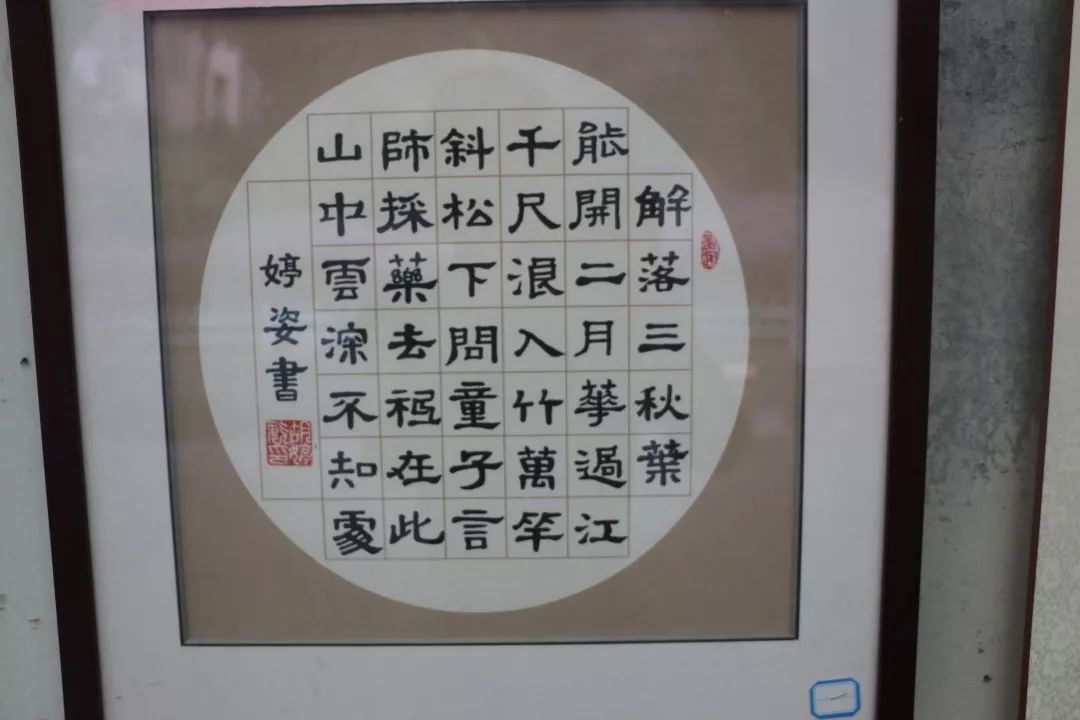 解落三秋葉
能開二月華過江
千尺浪入竹萬竿
斜松下問童子言
師採藥去祗在此
山中雲深不知處
婷姿書
胡婷姿印
一